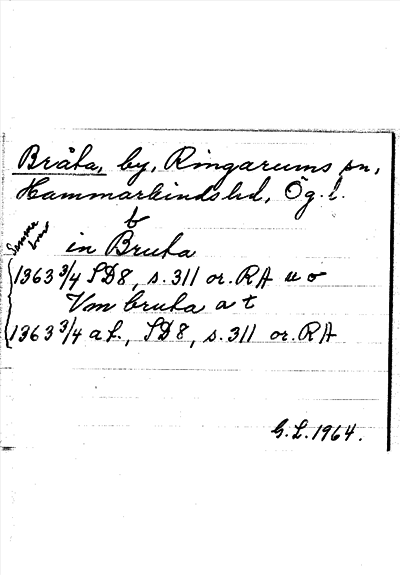 Bråta, by, Ringarums sn,
Hammarkinds hd, Ög. l.
t
in Bruta
Samma brev
1363 3/4 SD8, s. 311 or. RA u o
Vm bruta a t
1363 3/4 a f., SD8, s. 311 or. RA
G.L. 1964.